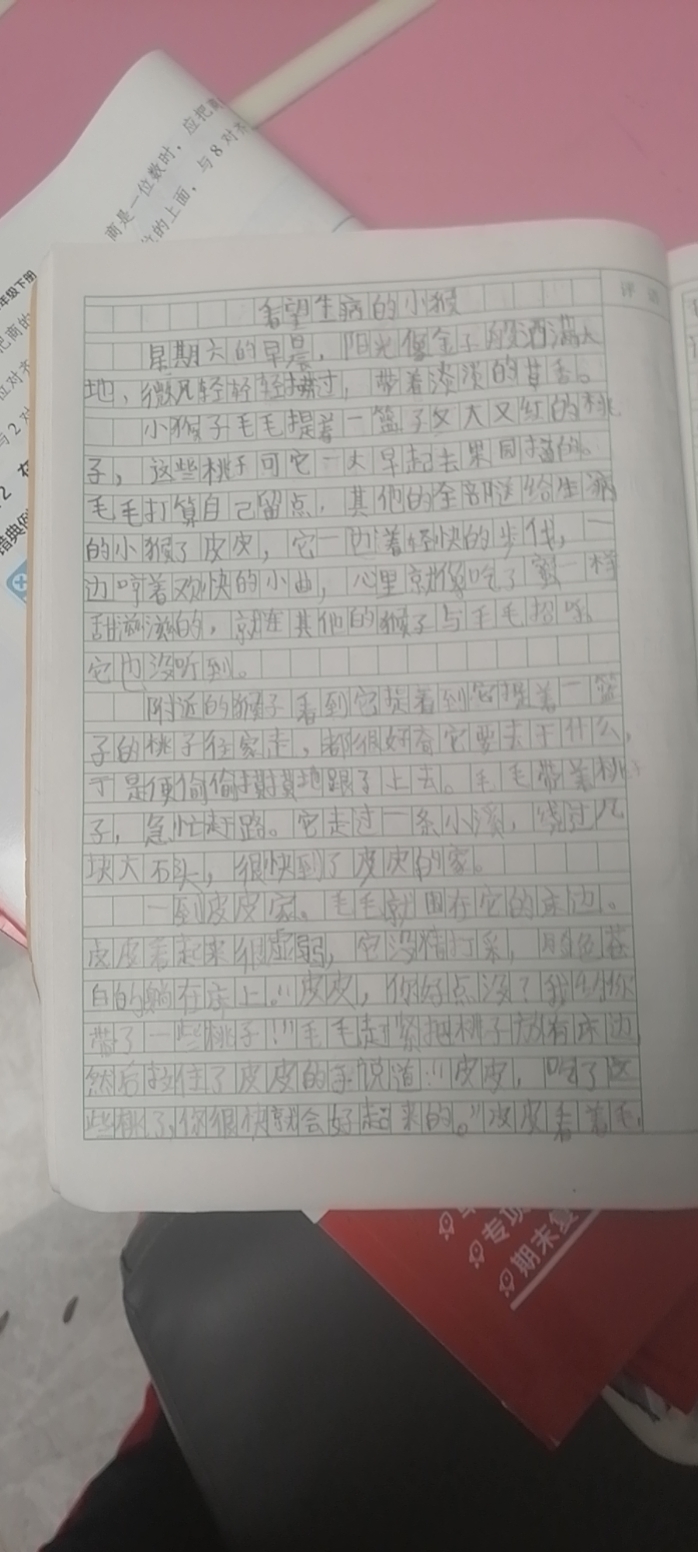 商是一位数时，应把商
的上面，与8对齐
年级下册
把商的
位对齐
与2对
2
错典例
评语
看望生病的小猴
星期六的早晨，阳光像金子般洒满大
地，微风轻轻轻拂过，带着淡淡的甘香。
小猴子毛毛提着一篮子又大又红的桃
子，这些桃子可它一大早起去果园摘的。
毛毛打算自己留点，其他的全部送给生病
的小猴子皮皮，它一边着轻快的步伐，一
边哼着欢快的小曲，心里就像吃了蜜一样
甜滋滋的，就连其他的猴子与毛毛招呼，
它也没听到。
附近的猴子看到它提着到它提着一篮
子的桃子往家走，都很好奇它要去干什么，
于是便偷偷摸摸地跟了上去。毛毛带着桃
子，急忙赶路。它走过一条小溪，绕过几
块大石头，很快到了皮皮的家。
一到皮皮家。毛毛就围在它的床边。
皮皮看起来很虚弱，它没精打采，脸色苍
白的躺在床上。“皮皮，你好点没？我给你
带了一些桃子！”毛毛赶紧把桃子放在床边，
然后拉住了皮皮的手说道：“皮皮，吃了这
些桃子，你很快就会好起来的。”皮皮看着毛
专项
期末复